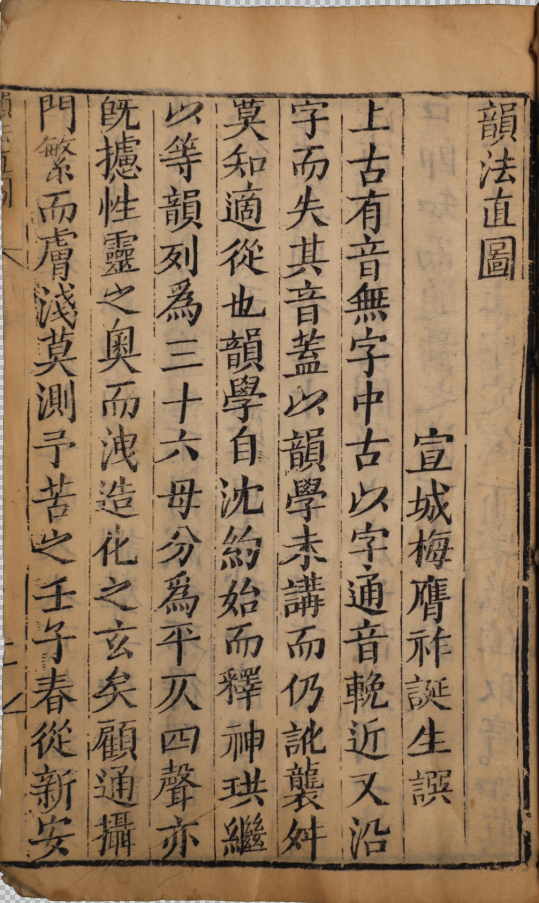 韻法直圖
宣城梅膺祚誕生譔
上古有音無字中古以字通音輓近又沿
字而失其音葢以韻學未講而仍訛襲舛
莫知適從也韻學自沈約始而釋神珙繼
以等韻列爲三十六母分爲平仄四聲亦
旣攄性靈之奧而洩造化之玄矣顧通攝
門繁而膚淺莫測予苦之壬子春從新安